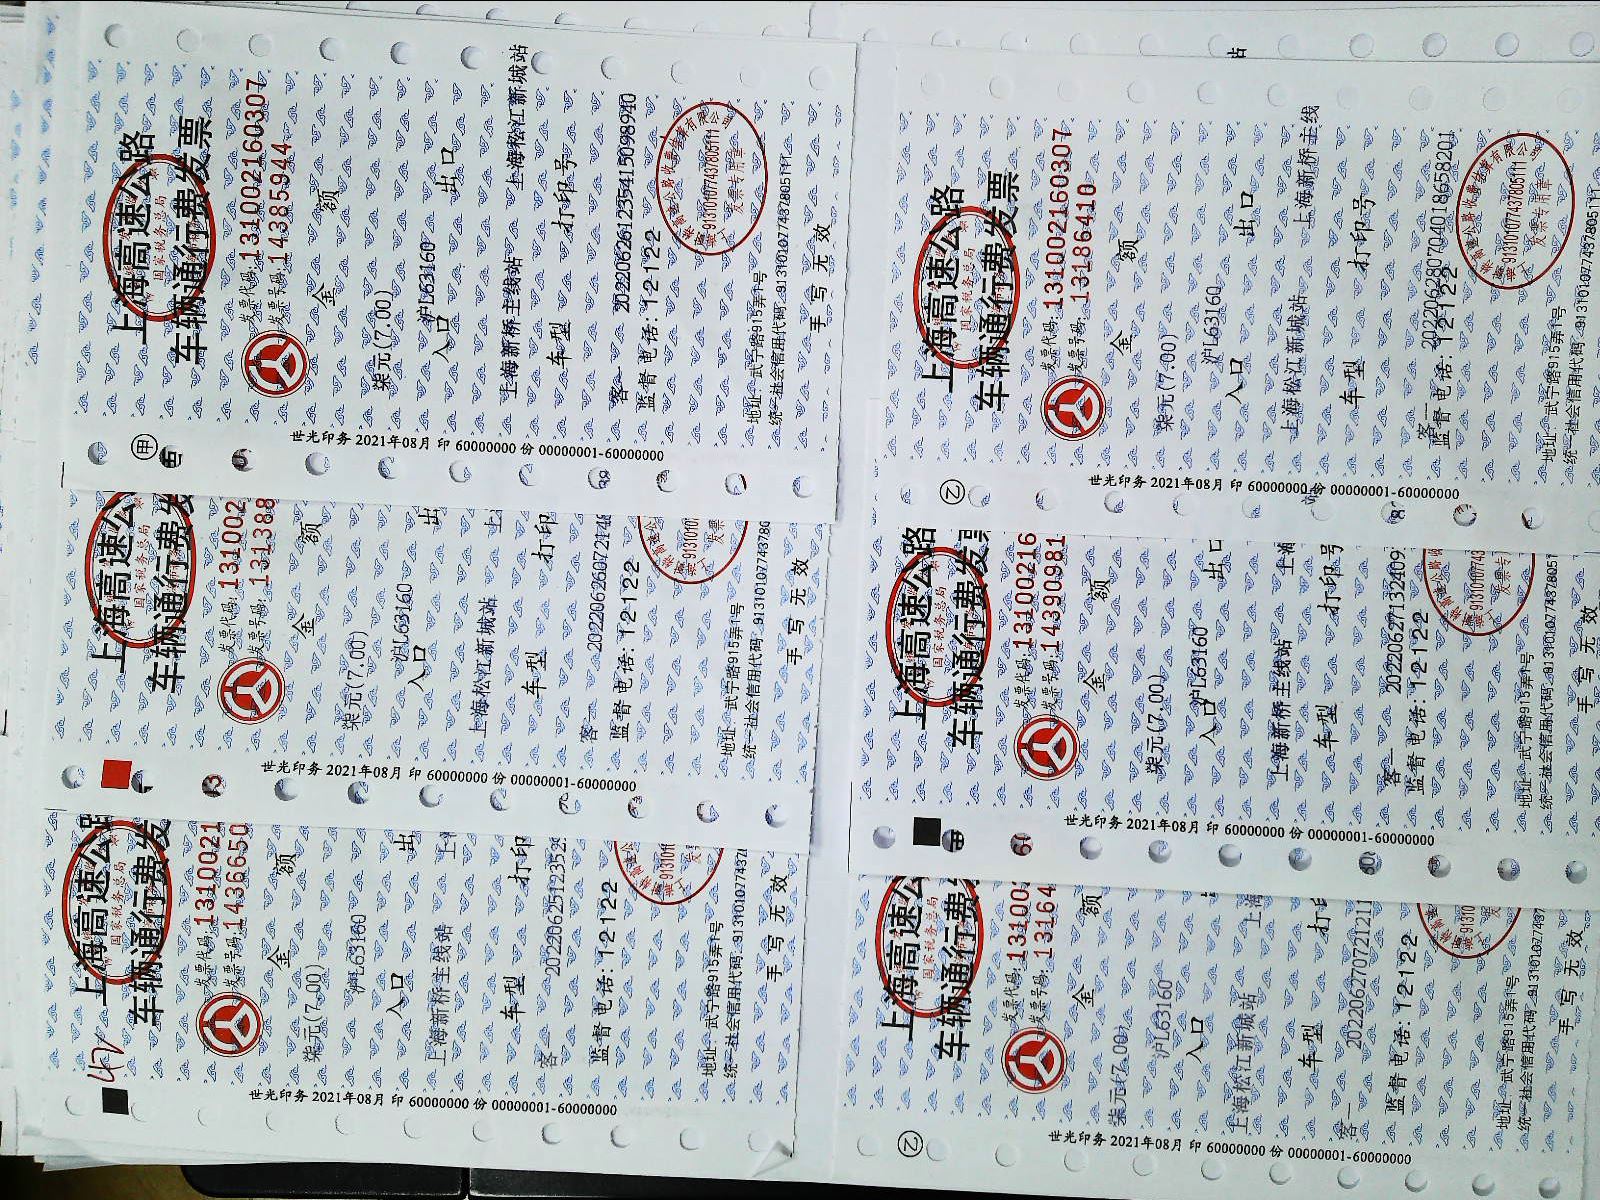 上海高速公路
国家税务总局
车辆通行费发票
发票代码:131002160307
发票号码:14385944
金 额
柒元(7.00)
沪L63160
入口 出口
上海新桥主线站 上海松江新城站
车型 打印号
客一 2022062612354150989​40
监督电话:12122
地址:武宁路915弄1号
统一社会信用代码:913101077437805111
手写无效
913101077437805111
发票专用章
世光印务 2021年08月 印 60000000 份 00000001-60000000
甲
上海高速公
国家税务总局
车辆通行费发
发票代码:131002
发票号码:131388
金 额
柒元(7.00)
沪L63160
入口 出
上海松江新城站 上
车型 打印
客一 20220626072148
监督电话:12122
地址:武宁路915弄1号
统一社会信用代码:91310107743780
手写无效
世光印务 2021年08月 印 60000000 份 00000001-60000000
上海高速公路
国家税务总局
车辆通行费发
发票代码:1310021
发票号码:1436650
金 额
柒元(7.00)
沪L63160
入口 出
上海新桥主线站 上
车型 打印
客一 2022062512352
监督电话:12122
地址:武宁路915弄1号
统一社会信用代码:91310107743
手写无效
42
世光印务 2021年08月 印 60000000 份 00000001-60000000
上海高速公路
国家税务总局
车辆通行费发票
发票代码:131002160307
发票号码:13186410
金 额
柒元(7.00)
沪L63160
入口 出口
上海松江新城站 上海新桥主线
车型 打印号
客一 20220628070401865820​1
监督电话:12122
地址:武宁路915弄1号
统一社会信用代码:913101077437805111
913101077437805111
发票专用章
世光印务 2021年08月 印 60000000 份 00000001-60000000
②
上海高速公路
国家税务总局
车辆通行费发票
发票代码:13100216
发票号码:14390981
金 额
柒元(7.00)
沪L63160
入口 出口
上海新桥主线站 上海
车型 打印号
客一 20220627132409
监督电话:12122
地址:武宁路915弄1号
统一社会信用代码:9131010774378051
手写无效
世光印务 2021年08月 印 60000000 份 00000001-60000000
上海高速公
国家税务总局
车辆通行费
发票代码:131002
发票号码:13164
金 额
柒元(7.00)
沪L63160
入口
上海松江新城站 上海
车型 打
客一 2022062707212​11
监督电话:12122
地址:武宁路915弄1号
统一社会信用代码:913101077437
手写无效
世光印务 2021年08月 印 60000000 份 00000001-60000000
②
站